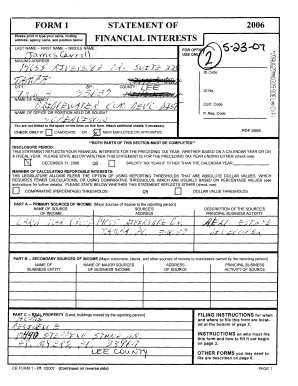 FORM 1
STATEMENT OF
2006
FINANCIAL INTERESTS
Please print or type your name, mailing
address, agency name, and position below:
LAST NAME -- FIRST NAME -- MIDDLE NAME
James Carroll
FOR OFFICE
USE ONLY
2
5-23-07
MAILING ADDRESS
Riverside Dr. Suite
ID Code
CITY
ZIP
COUNTY
LEE
ID No.
NAME OF AGENCY
Conf. Code
NAME OF OFFICE OR POSITION HELD OR SOUGHT
Supervisor
P. Req. Code
You are not limited to the space on the lines on this form. Attach additional sheets, if necessary.
CHECK ONLY IF
CANDIDATE
OR
NEW EMPLOYEE OR APPOINTEE
PDF 2006
**BOTH PARTS OF THIS SECTION MUST BE COMPLETED**
DISCLOSURE PERIOD:
THIS STATEMENT REFLECTS YOUR FINANCIAL INTERESTS FOR THE PRECEDING TAX YEAR, WHETHER BASED ON A CALENDAR YEAR OR ON
A FISCAL YEAR. PLEASE STATE BELOW WHETHER THIS STATEMENT IS FOR THE PRECEDING TAX YEAR ENDING EITHER (check one):
DECEMBER 31, 2006
OR
SPECIFY TAX YEAR IF OTHER THAN THE CALENDAR YEAR:
MANNER OF CALCULATING REPORTABLE INTERESTS:
THE LEGISLATURE ALLOWS FILERS THE OPTION OF USING REPORTING THRESHOLDS THAT ARE ABSOLUTE DOLLAR VALUES, WHICH
REQUIRES FEWER CALCULATIONS, OR USING COMPARATIVE THRESHOLDS, WHICH ARE USUALLY BASED ON PERCENTAGE VALUES (see
instructions for further details). PLEASE STATE BELOW WHETHER THIS STATEMENT REFLECTS EITHER (check one):
COMPARATIVE (PERCENTAGE) THRESHOLDS
OR
DOLLAR VALUE THRESHOLDS
PART A -- PRIMARY SOURCES OF INCOME [Major sources of income to the reporting person]
NAME OF SOURCE
OF INCOME
SOURCE'S
ADDRESS
DESCRIPTION OF THE SOURCE'S
PRINCIPAL BUSINESS ACTIVITY
Riverside Dr.
Real Estate
PART B -- SECONDARY SOURCES OF INCOME [Major customers, clients, and other sources of income to businesses owned by the reporting person]
NAME OF
BUSINESS ENTITY
NAME OF MAJOR SOURCES
OF BUSINESS' INCOME
ADDRESS
OF SOURCE
PRINCIPAL BUSINESS
ACTIVITY OF SOURCE
PART C -- REAL PROPERTY [Land, buildings owned by the reporting person]
Residence
LEE COUNTY
FILING INSTRUCTIONS for when
and where to file this form are locat-
ed at the bottom of page 2.
INSTRUCTIONS on who must file
this form and how to fill it out begin
on page 3.
OTHER FORMS you may need to
file are described on page 6.
CE FORM 1 - Eff. 1/2007
(Continued on reverse side)
PAGE 1